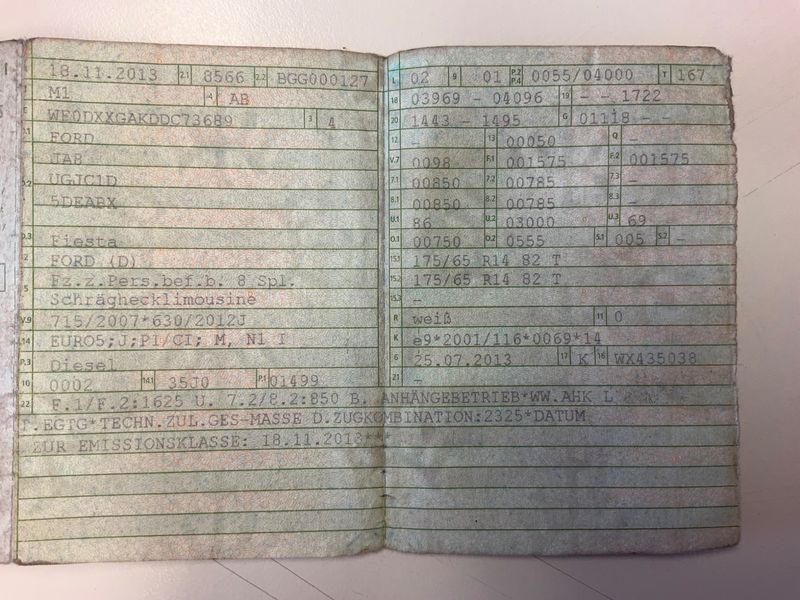 18.11.2013 2.1 8566 2.2 BGG000127
M1 4 AB
WF0DXXGAKDDC73689 3 4
FORD
JA8
UGJC1D
5DEABX
Fiesta
FORD (D)
Fz.z.Pers.bef.b. 8 Spl.
Schräghecklimousine
715/2007*630/2012J
EURO5;J;PI/CI; M, N1 I
P.3 Diesel
10 0002 14.1 35J0 P.1 01499
L 02 9 01 P.2 P.4 0055/04000 T 167
18 03969 - 04096 19 - - 1722
20 1443 - 1495 G 01118 - -
12 - 13 00050 Q -
V.7 0098 F.1 001575 F.2 001575
7.1 00850 7.2 00785 7.3 -
8.1 00850 8.2 00785 8.3 -
U.1 86 U.2 03000 U.3 69
O.1 00750 O.2 0555 S.1 005 S.2 -
15.1 175/65 R14 82 T
15.2 175/65 R14 82 T
15.3 -
R weiß 11 0
K e9*2001/116*0069*14
6 25.07.2013 17 K 16 WX435038
21 -
22 F.1/F.2:1625 U. 7.2/8.2:850 B. ANHÄNGEBETRIEB*WW.AHK L
T.EGTG*TECHN.ZUL.GES-MASSE D.ZUGKOMBINATION:2325*DATUM
ZUR EMISSIONSKLASSE: 18.11.2013***